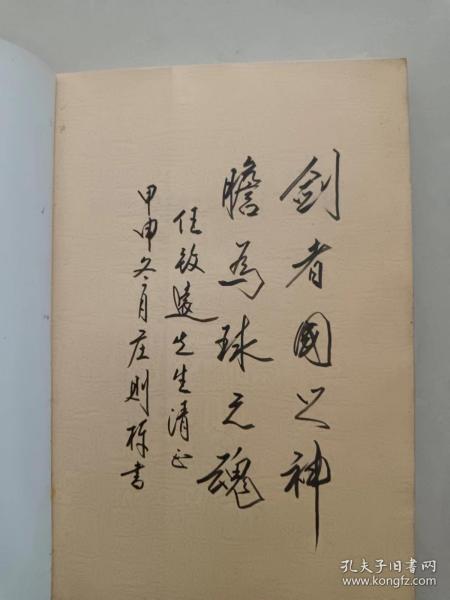 剑者國之神
膽為球之魂
任致遠先生清正
甲申冬月庄则栋書
孔夫子旧书网
www.kongfz.com